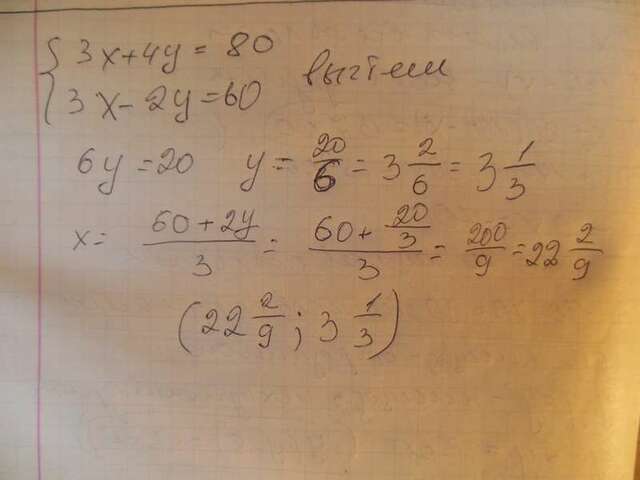 { 3x+4y = 80
{ 3x - 2y = 60 вычтем
6y = 20 y = 20/6 = 3 2/6 = 3 1/3
x = (60 + 2y)/3 = (60 + 20/3)/3 = 200/9 = 22 2/9
(22 2/9 ; 3 1/3)